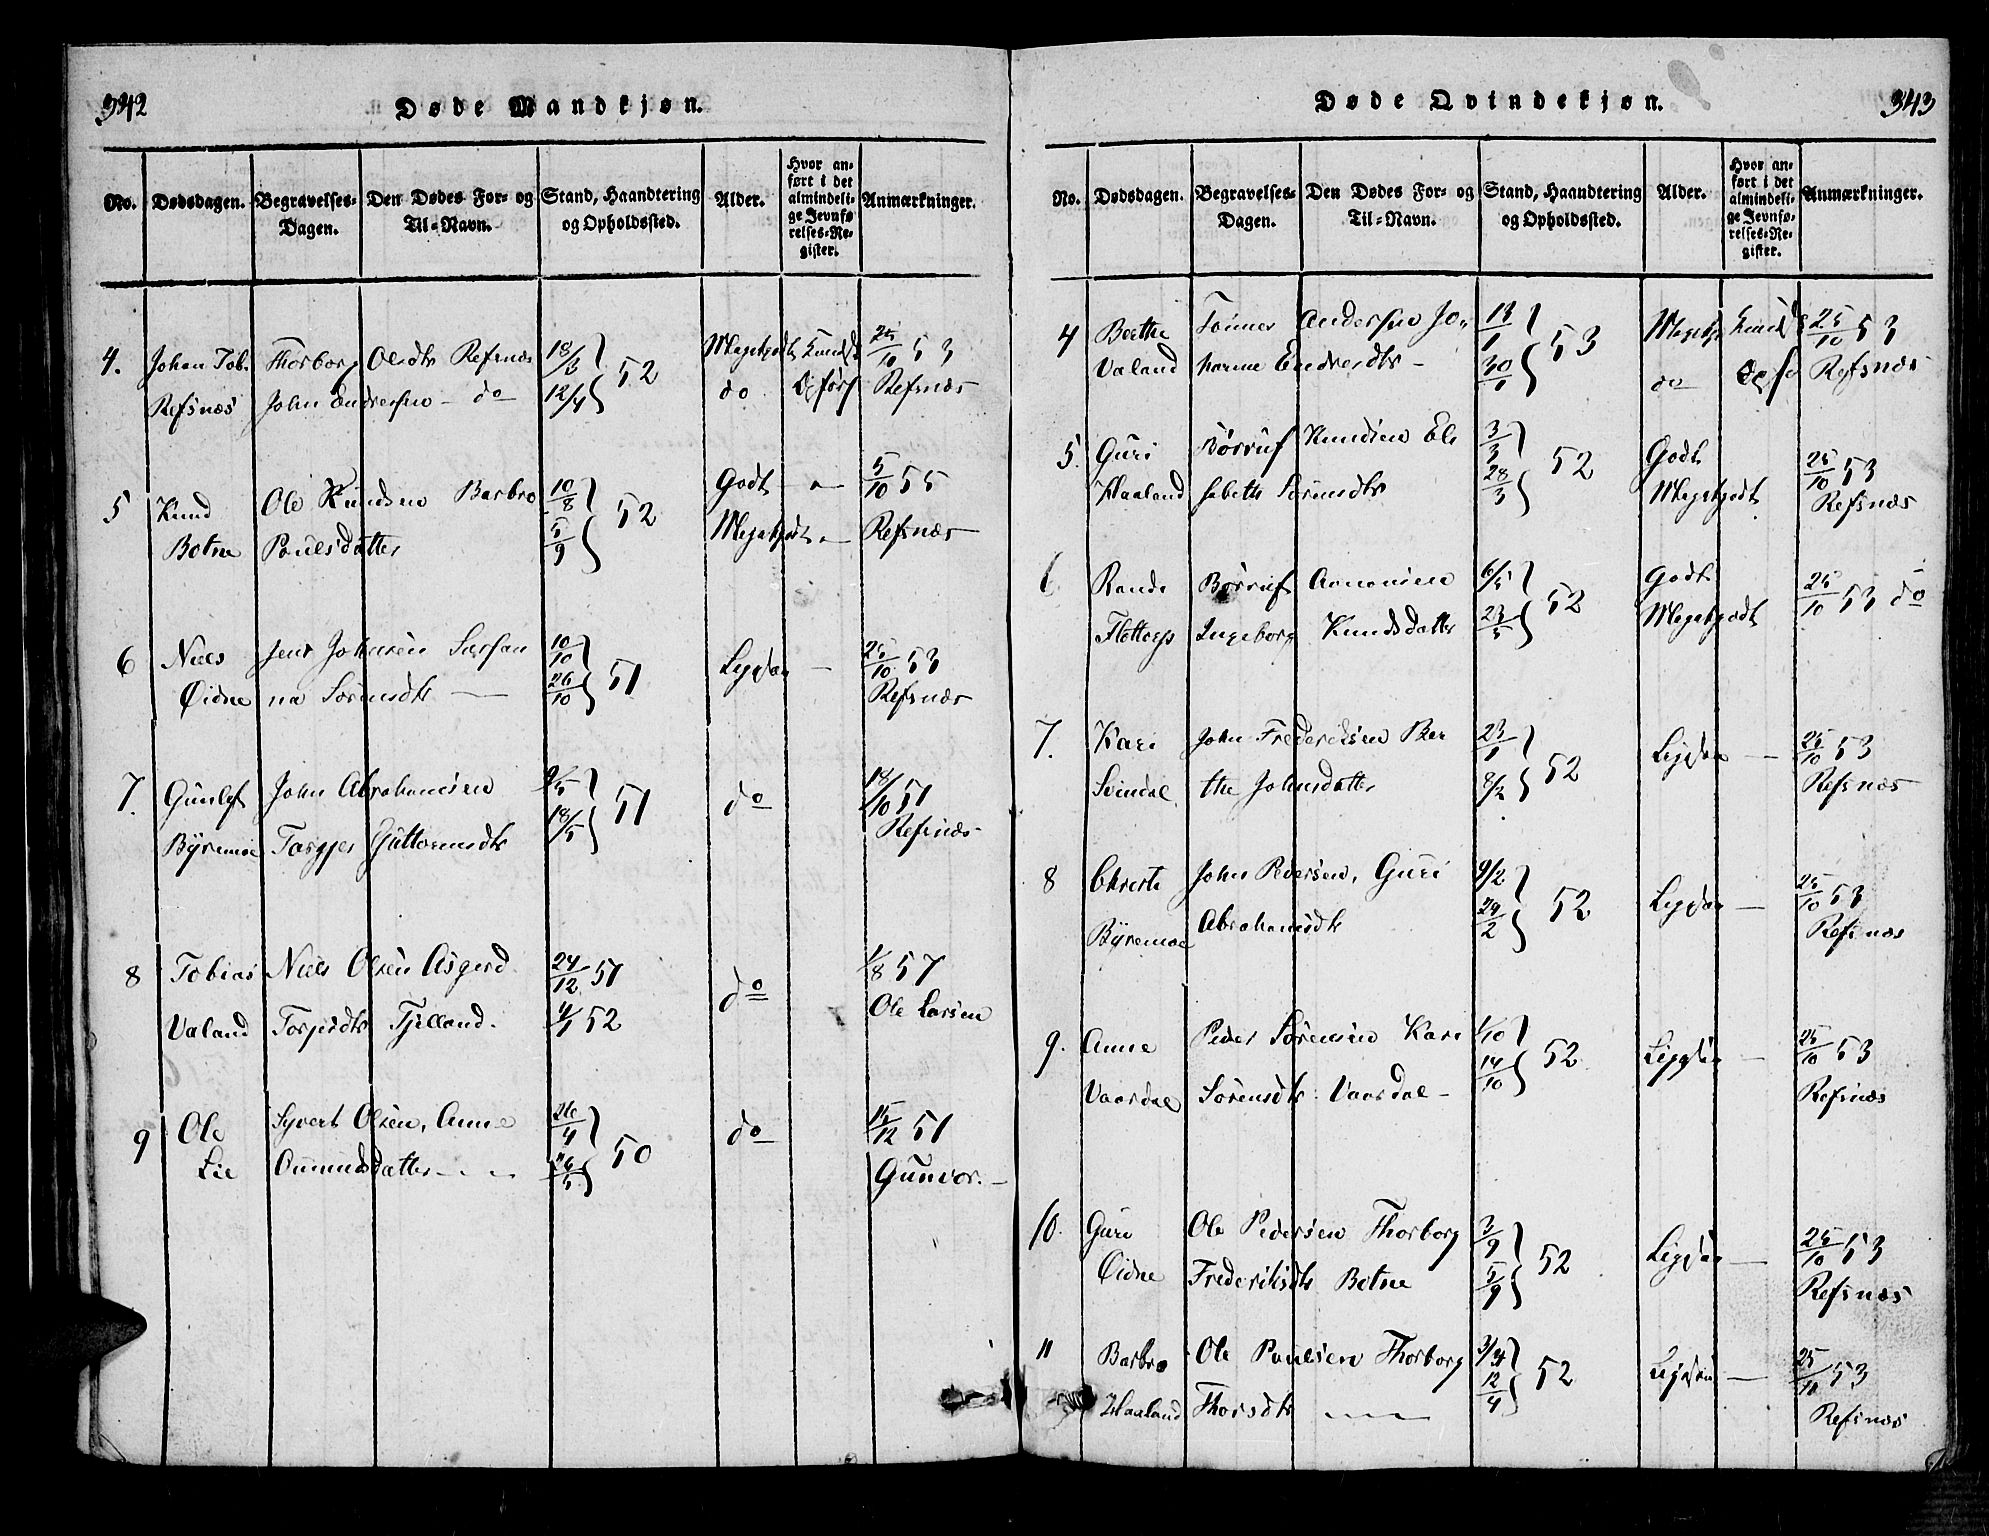 342
Døde Mandkjøn.
No.
Dødsdagen.
Begravelses-Dagen.
Den Dødes For- og Til-Navn.
Stand, Haandtering og Opholdssted.
Alder.
Hvor anført i det almindelige Jevnførelses-Register.
Anmærkninger.
4. Johan Tob. Thorborg Olsdtr Refsnæs 18/3 } 52 Megetgodt Kundsk 25/10 53
Refsnæs John Endresen - do 12/4 do Opførs Refsnæs
5 Knud Ole Knudsen Barbro 10/8 } 52 Godt - 5/10 55
Botne Paulsdatter 5/9 Megetgodt - Refsnæs
6 Niels Jens Johnsen 10/10 } 51 25/10 53
Øidne na Sørensdtr 26/10 Refsnæs
7. Gunlef John Abrahamsen } 51 do 18/10 51
Byremoe Guttormsdtr 18/5 Refsnæs
8 Tobias Niels Olsen Asgerd 24/12 51 do 1/8 57
Valand Tjelland. 4/1 52 Ole Larsen
9 Ole Syvert Olsen, Anne 26/4 } 50 do 15/12 51
Lie Gunvor. -
343
Døde Qvindekjøn.
No.
Dødsdagen.
Begravelses-Dagen.
Den Dødes For- og Til-Navn.
Stand, Haandtering og Opholdssted.
Alder.
Hvor anført i det almindelige Jevnførelses-Register.
Anmærkninger.
4 Berthe Tønnes Andersen Jo- } 53 Kundsk 25/10 53
Valand hanne Endresdtr - 30/1 do Opfø Refsnæs
5. Guri Børruf Knudsen Eli 3/3 } 52 Godt 25/10 53
Haaland sabeth Sørensdtr 28/3 Megetgodt Refsnæs
6 Børruf Aanonsen 6/5 } 52 Godt 25/10 53 do
Ingeborg Knudsdatter 23/5 Megetgodt
7. Kari John Frederiksen Ber 23/1 } 52 - 25/10 53
Svindal the Johnsdatter 8/2 Refsnæs
8 John Pedersen, Guri 9/2 } 52 - 25/10 53
Byremoe Abrahamsdtr 29/2 Refsnæs
9. Anne Peder Sørensen Kari 1/10 } 52 - 25/10 53
Vaardal Sørensdtr Vaardal - 14/10 Refsnæs
10. Guri Ole Pedersen Thorborg 3/9 } 52 - 25/10 53
Øidne Frederiksdtr Botne 5/9 Refsnæs
11 Barbro Ole Paulsen Thorborg 3/4 } 52 - 25/10 53
Haaland Thorsdtr 12/4 Refsnæs